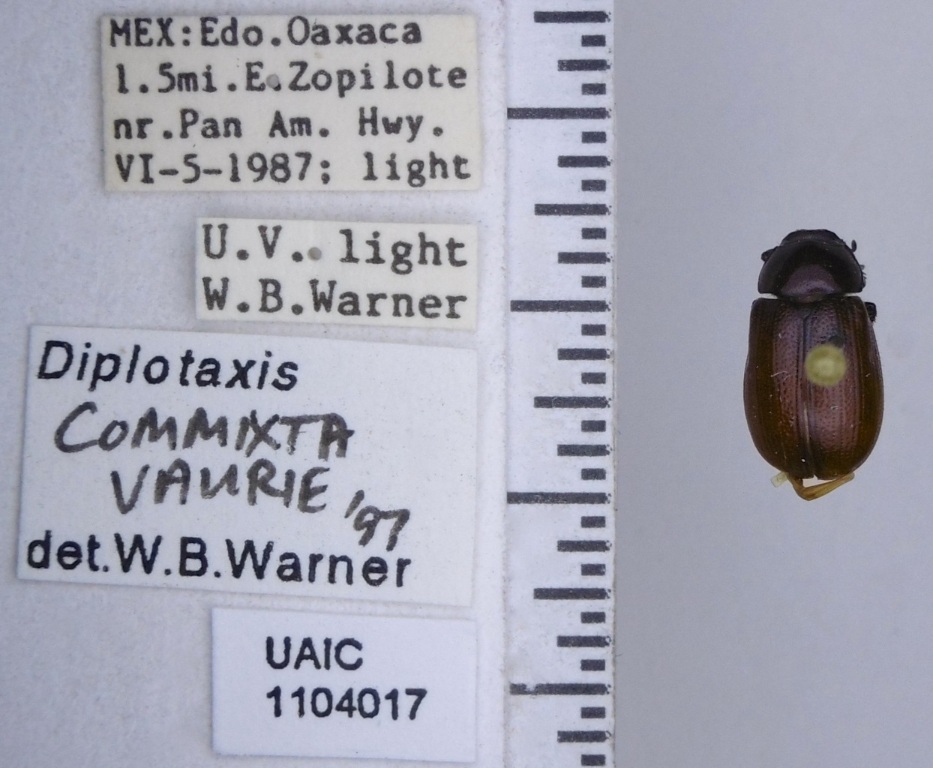 MEX:Edo.Oaxaca
1.5mi.E.Zopilote
nr.Pan Am. Hwy.
VI-5-1987; light
U.V. light
W.B.Warner
Diplotaxis
COMMIXTA
VAURIE '97
det.W.B.Warner
UAIC
1104017